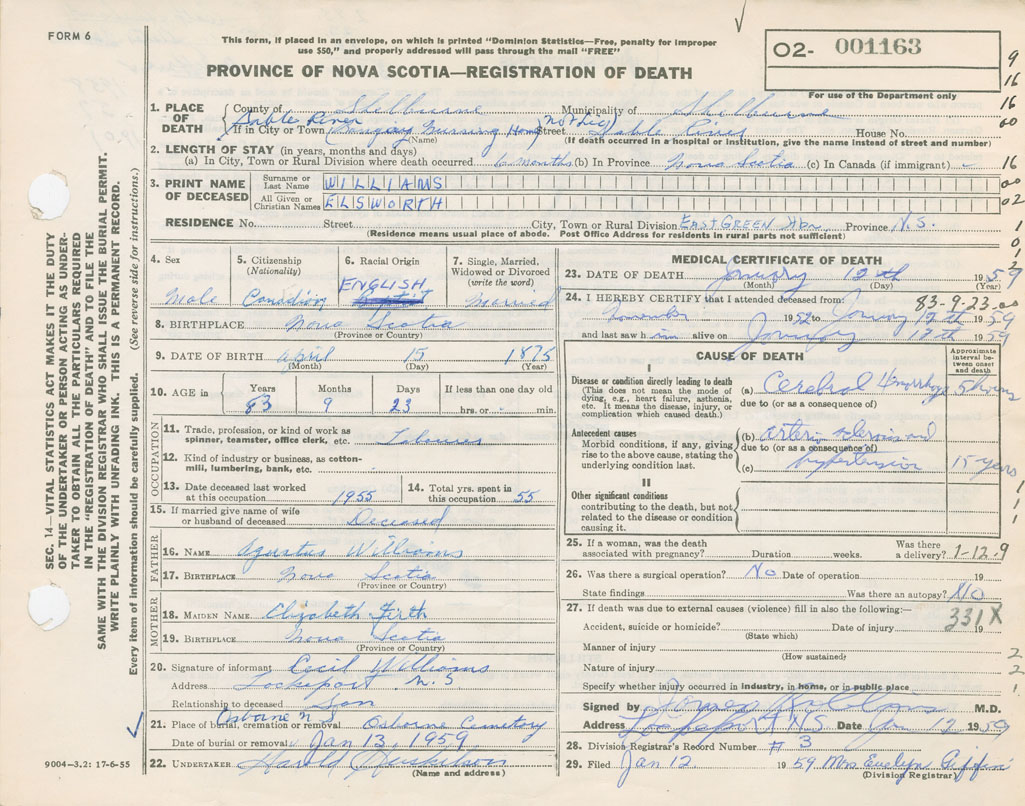 FORM 6
This form, if placed in an envelope, on which is printed "Dominion Statistics—Free, penalty for improper
use $50," and properly addressed will pass through the mail "FREE"
PROVINCE OF NOVA SCOTIA—REGISTRATION OF DEATH
O2- 001163
For use of the Department only
9
16
16
60
16
00
02
1
0
1
2
SEC. 14—VITAL STATISTICS ACT MAKES IT THE DUTY
OF THE UNDERTAKER OR PERSON ACTING AS UNDER-
TAKER TO OBTAIN ALL THE PARTICULARS REQUIRED
IN THE "REGISTRATION OF DEATH" AND TO FILE THE
SAME WITH THE DIVISION REGISTRAR WHO SHALL ISSUE THE BURIAL PERMIT.
WRITE PLAINLY WITH UNFADING INK. THIS IS A PERMANENT RECORD.
Every item of information should be carefully supplied. (See reverse side for instructions.)
1. PLACE OF DEATH
County of Shelburne Municipality of Shelburne
Sable River
If in City or Town Nursing Home Street Sable River House No.
(Name) (If death occurred in a hospital or Institution, give the name instead of street and number)
2. LENGTH OF STAY (in years, months and days)
(a) In City, Town or Rural Division where death occurred 6 months (b) In Province Nova Scotia (c) In Canada (if immigrant) -
3. PRINT NAME OF DECEASED
Surname or Last Name WILLIAMS
All Given or Christian Names ELSWORTH
RESIDENCE No. Street City, Town or Rural Division EAST GREEN Hbr. Province N.S.
(Residence means usual place of abode. Post Office Address for residents in rural parts not sufficient)
4. Sex 5. Citizenship (Nationality) 6. Racial Origin 7. Single, Married, Widowed or Divorced (write the word)
Male Canadian ENGLISH Married
8. BIRTHPLACE Nova Scotia
(Province or Country)
9. DATE OF BIRTH April 15 1875
(Month) (Day) (Year)
10. AGE in Years Months Days If less than one day old
83 9 23 hrs. or min.
OCCUPATION
11. Trade, profession, or kind of work as
spinner, teamster, office clerk, etc. Labourer
12. Kind of industry or business, as cotton-
mill, lumbering, bank, etc.
13. Date deceased last worked
at this occupation 1955
14. Total yrs. spent in
this occupation 55
15. If married give name of wife
or husband of deceased Deceased
FATHER
16. NAME Agustus Williams
17. BIRTHPLACE Nova Scotia
(Province or Country)
MOTHER
18. MAIDEN NAME Elizabeth Firth
19. BIRTHPLACE Nova Scotia
(Province or Country)
20. Signature of informant Cecil Williams
Address Lockeport N.S
Relationship to deceased Son
Osborne N.S
21. Place of burial, cremation or removal Osborne Cemetory
Date of burial or removal Jan 13, 1959
22. UNDERTAKER Harold Huskilson
(Name and address)
9004—3.2: 17-6-55
MEDICAL CERTIFICATE OF DEATH
23. DATE OF DEATH January 12th 1959
(Month) (Day) (Year)
24. I HEREBY CERTIFY that I attended deceased from: 83-9-23-00
November 1952 to January 12th 1959
and last saw him alive on January 12th 1959
CAUSE OF DEATH
Approximate interval be-tween onset and death
I
Disease or condition directly leading to death
(This does not mean the mode of
dying, e.g., heart failure, asthenia,
etc. It means the disease, injury, or
complication which caused death.)
(a) Cerebral Hemorrhage 5 hours
due to (or as a consequence of)
Antecedent causes
Morbid conditions, if any, giving
rise to the above cause, stating the
underlying condition last.
(b) arterio sclerosis and
due to (or as a consequence of)
(c) hypertension 15 years
II
Other significant conditions
contributing to the death, but not
related to the disease or condition
causing it.
1
1
1
25. If a woman, was the death
associated with pregnancy? Duration weeks. Was there
a delivery? 1-12.9
26. Was there a surgical operation? No Date of operation 19
State findings Was there an autopsy? No
27. If death was due to external causes (violence) fill in also the following:—
331X
Accident, suicide or homicide? Date of injury 19
(State which)
Manner of injury 2
(How sustained)
Nature of injury 2
Specify whether injury occurred in industry, in home, or in public place 1
Signed by M.D.
Address Lockeport N.S. Date Jan 12 1959
28. Division Registrar's Record Number # 3
29. Filed Jan 12 1959 Mrs Evelyn Giffin
(Division Registrar)